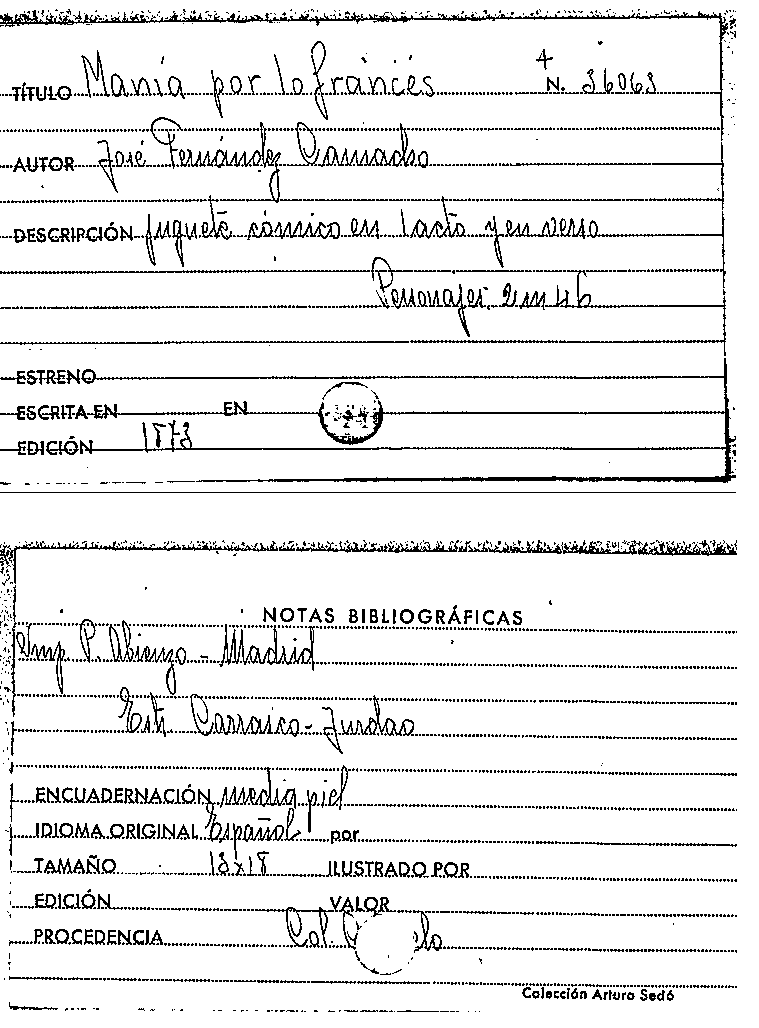 TÍTULO Manía por lo francés 4 N. 36063
AUTOR José Fernández Camacho
DESCRIPCIÓN juguete cómico en 1 acto y en verso
Personajes. 2 m 4 h
ESTRENO
ESCRITA EN EN
EDICIÓN 1873
NOTAS BIBLIOGRÁFICAS
Imp P. Abienzo - Madrid
Carrasco - Jurdao
ENCUADERNACIÓN media piel
IDIOMA ORIGINAL Español por
TAMAÑO 13x18 ILUSTRADO POR
EDICIÓN VALOR
PROCEDENCIA Col.
Colección Arturo Sedó